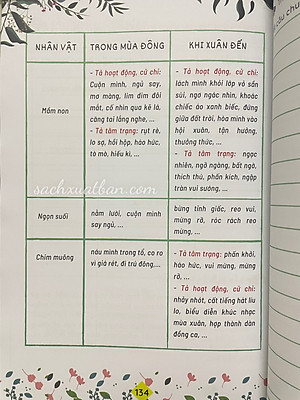 NHÂN VẬT
TRONG MÙA ĐÔNG
KHI XUÂN ĐẾN
Mầm non
- Tả hoạt động, cử chỉ:
Cuộn mình, ngủ say,
mơ màng, lim dim đôi
mắt, cố nhìn qua kẽ lá,
căng tai lắng nghe, ...
- Tả tâm trạng: rụt rè,
lo sợ, hồi hộp, háo hức,
tò mò, hiếu kì, ...
- Tả hoạt động, cử chỉ:
lách mình khỏi lớp vỏ sần
sùi, ngơ ngác nhìn, khoác
chiếc áo xanh biếc, đứng
giữa đất trời, hòa mình vào
hội xuân, tận hưởng,
thưởng thức, ...
- Tả tâm trạng: ngạc
nhiên, ngỡ ngàng, bất ngờ,
thích thú, phấn kích, ngập
tràn vui sướng, ...
sachxuatban.com
Ngọn suối
nằm lười, cuộn mình
say ngủ, ...
bừng tỉnh giấc, reo vui,
mừng rỡ, róc rách reo
mừng, ...
Chim muông
náu mình trong tổ, co ro
vì giá rét, đi trú đông,...
- Tả tâm trạng: phấn khởi,
háo hức, vui mừng, mừng
rỡ, ...
- Tả hoạt động, cử chỉ:
nhảy nhót, cất tiếng hát líu
lo, biểu diễn khúc nhạc
mùa xuân, hợp thành dàn
đồng ca, ...
134